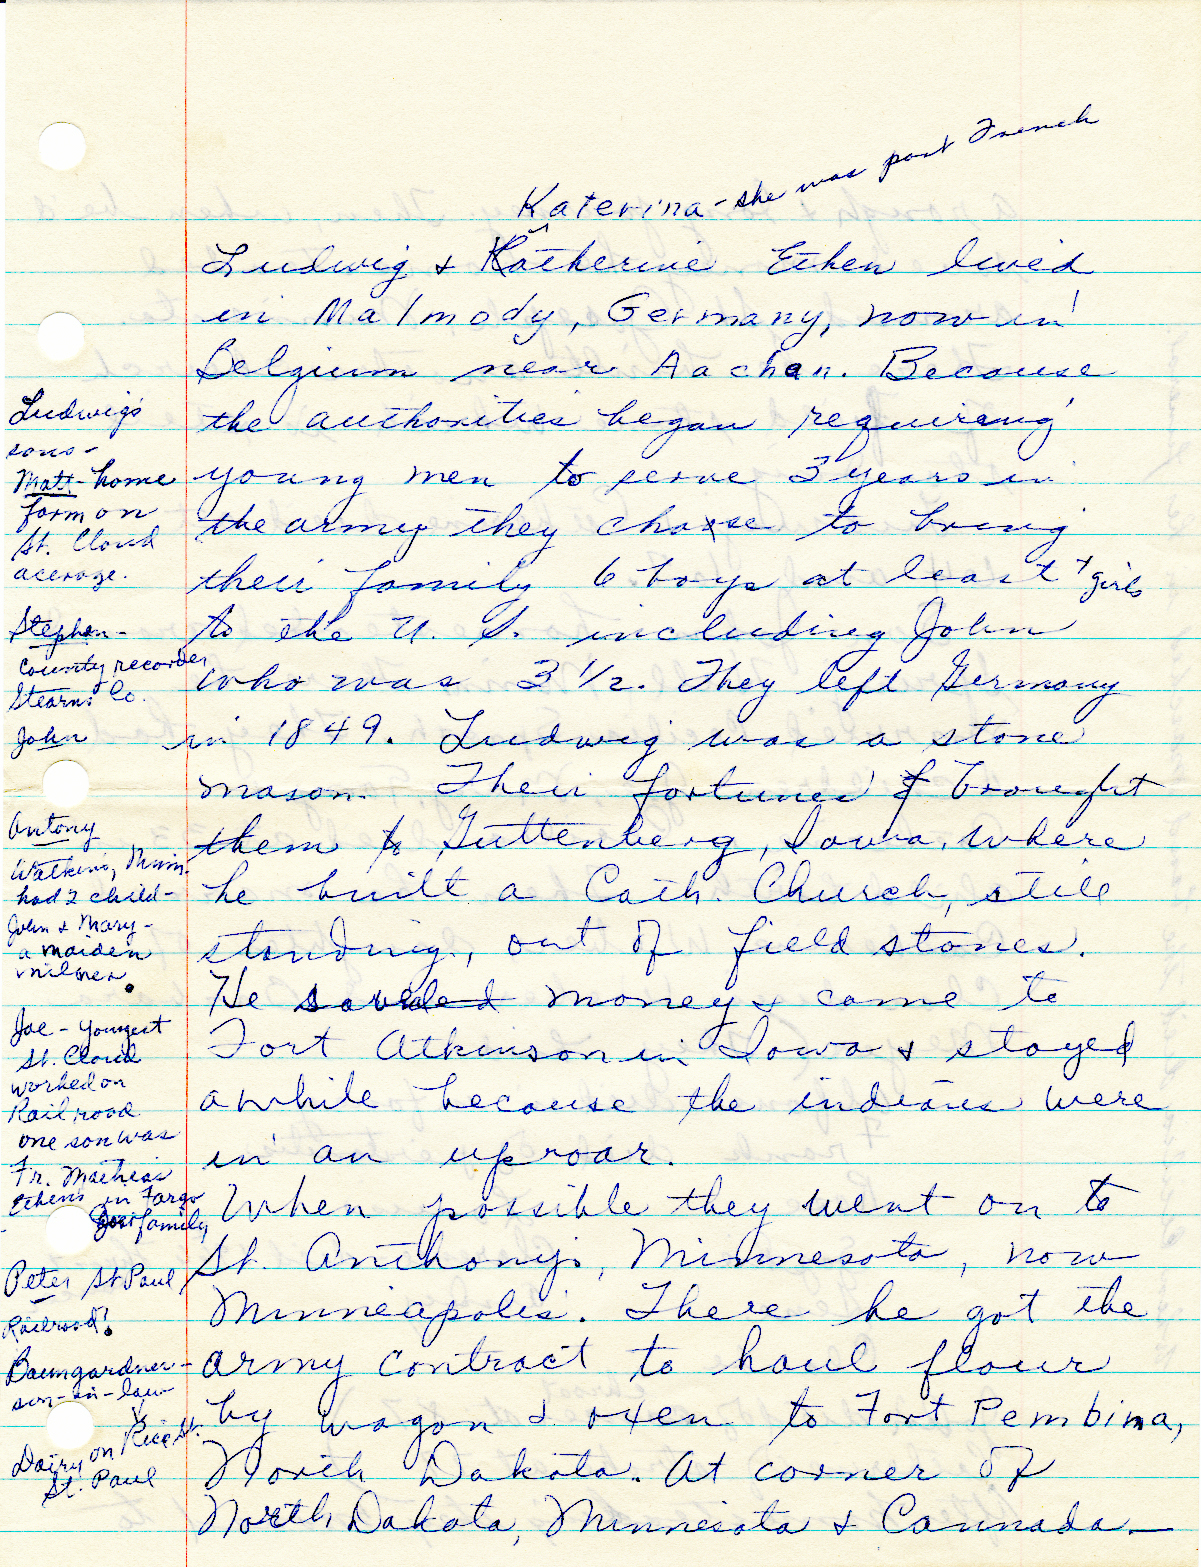 Katerina - she was part French
Ludwig & Katherine Ethen lived
in Malmody, Germany, now in
Belgium near Aachan. Because
the authorities began requireing
young men to serve 3 years in
the army they choose to bring
their family 6 boys at least + girls
to the U. S. including John
who was 3 1/2. They left Germany
in 1849. Ludwig was a stone
mason. Their fortunes brought
them to Guttenberg, Iowa, where
he built a Cath. Church, still
standing, out of field stones.
He saved money & came to
Fort Atkinson in Iowa & stayed
awhile because the indians were
in an uproar.
When possible they went on to
St. Anthonys, Minnesota, now
Minneapolis. There he got the
army contract to haul flour
by wagon & oxen to Fort Pembina,
North Dakota. At corner of
North Dakota, Minnesota & Cannada.—
Ludwigs
sons -
Matt - home
farm on
St. Cloud
acerage.
Stephen -
County recorder
Stearns Co.
John
Antony
Watkins, Minn.
had 2 child -
John & Mary -
a maiden
milner.
Joe - Youngest
St. Cloud
worked on
Railroad
one son was
Fr. Mathias
Ethens in Fargo
family
Peter St Paul
Railroad!
Baumgardner -
son-in-law
Dairy on Rice St.
St. Paul